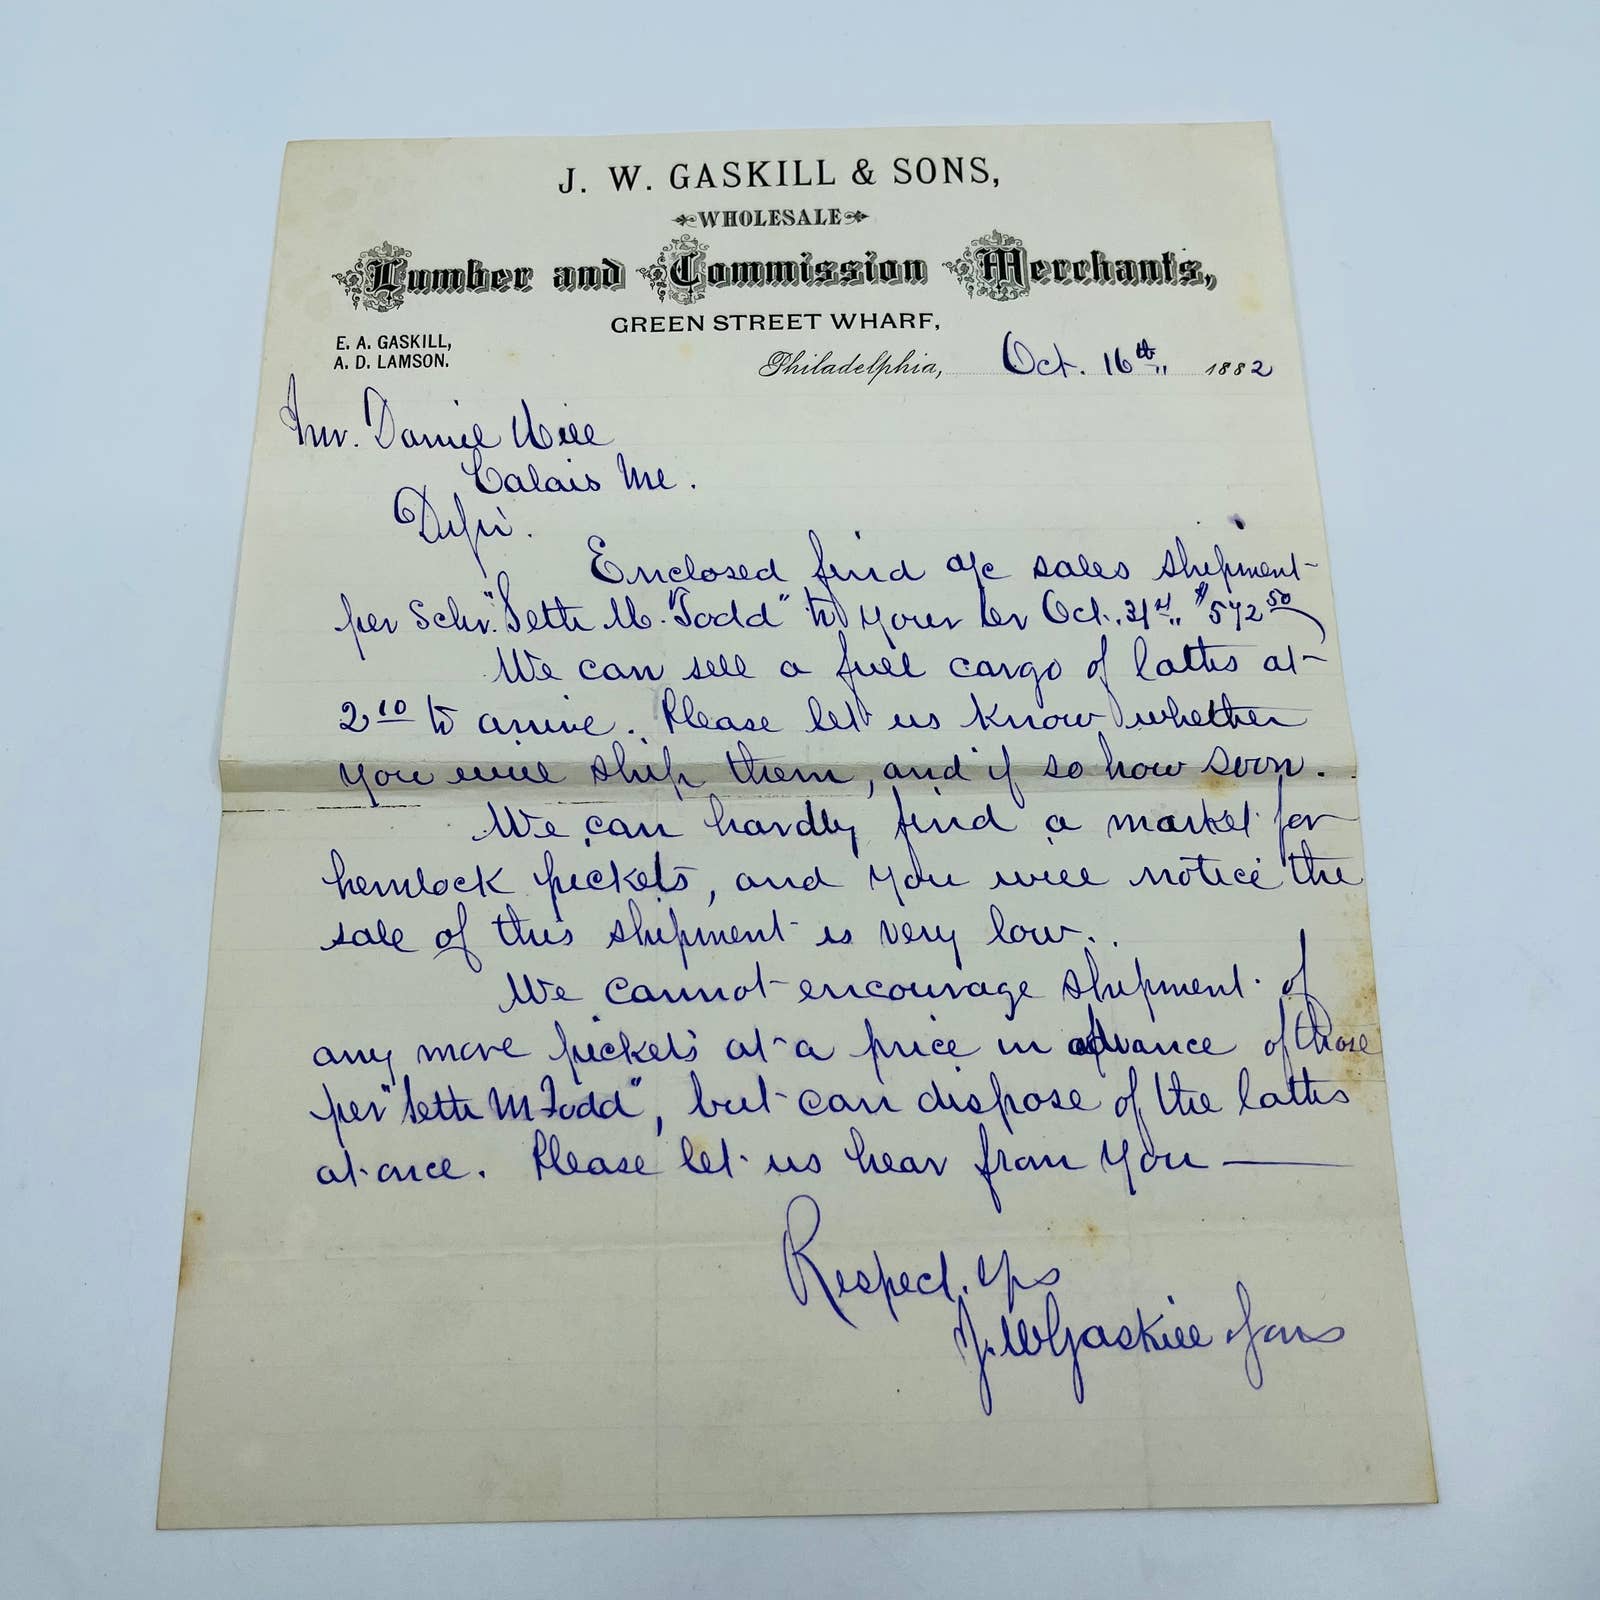 J. W. GASKILL & SONS,
WHOLESALE
Lumber and Commission Merchants,
GREEN STREET WHARF,
E. A. GASKILL,
A. D. LAMSON.
Philadelphia, Oct. 16th,, 1882
Mr. Daniel Hill
Calais Me.
D Sir.
Enclosed find a/c sales shipment
per Schr. "Seth M. Todd" to your Cr Oct. 31st,, $572 50
We can sell a full cargo of laths at
2 10 to arrive. Please let us know whether
you will ship them, and if so how soon.
We can hardly find a market for
hemlock pickets, and you will notice the
sale of this shipment is very low.
We cannot encourage shipment of
any more pickets at a price in advance of those
per "Seth M Todd", but can dispose of the laths
at once. Please let us hear from you —
Respect. Yrs
J. W Gaskill & Sons